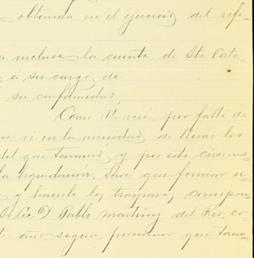 obtenida en el ejercicio del refe-
a incluso la cuenta de Sta Cata-
á su cargo de
su conformidad.
Como V. verá por falta de
me ví en la necesidad de llevar los
del que terminó, y por esta circuns-
la liquidacion, tuve que formar
y hacerle los traspasos, correspon-
D. Pablo Martinez del Rio, co-
año, segun pormenor que tam-